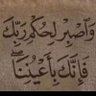 وَٱصْبِرْ لِحُكْمِ رَبِّكَ
فَإِنَّكَ بِأَعْيُنِنَا